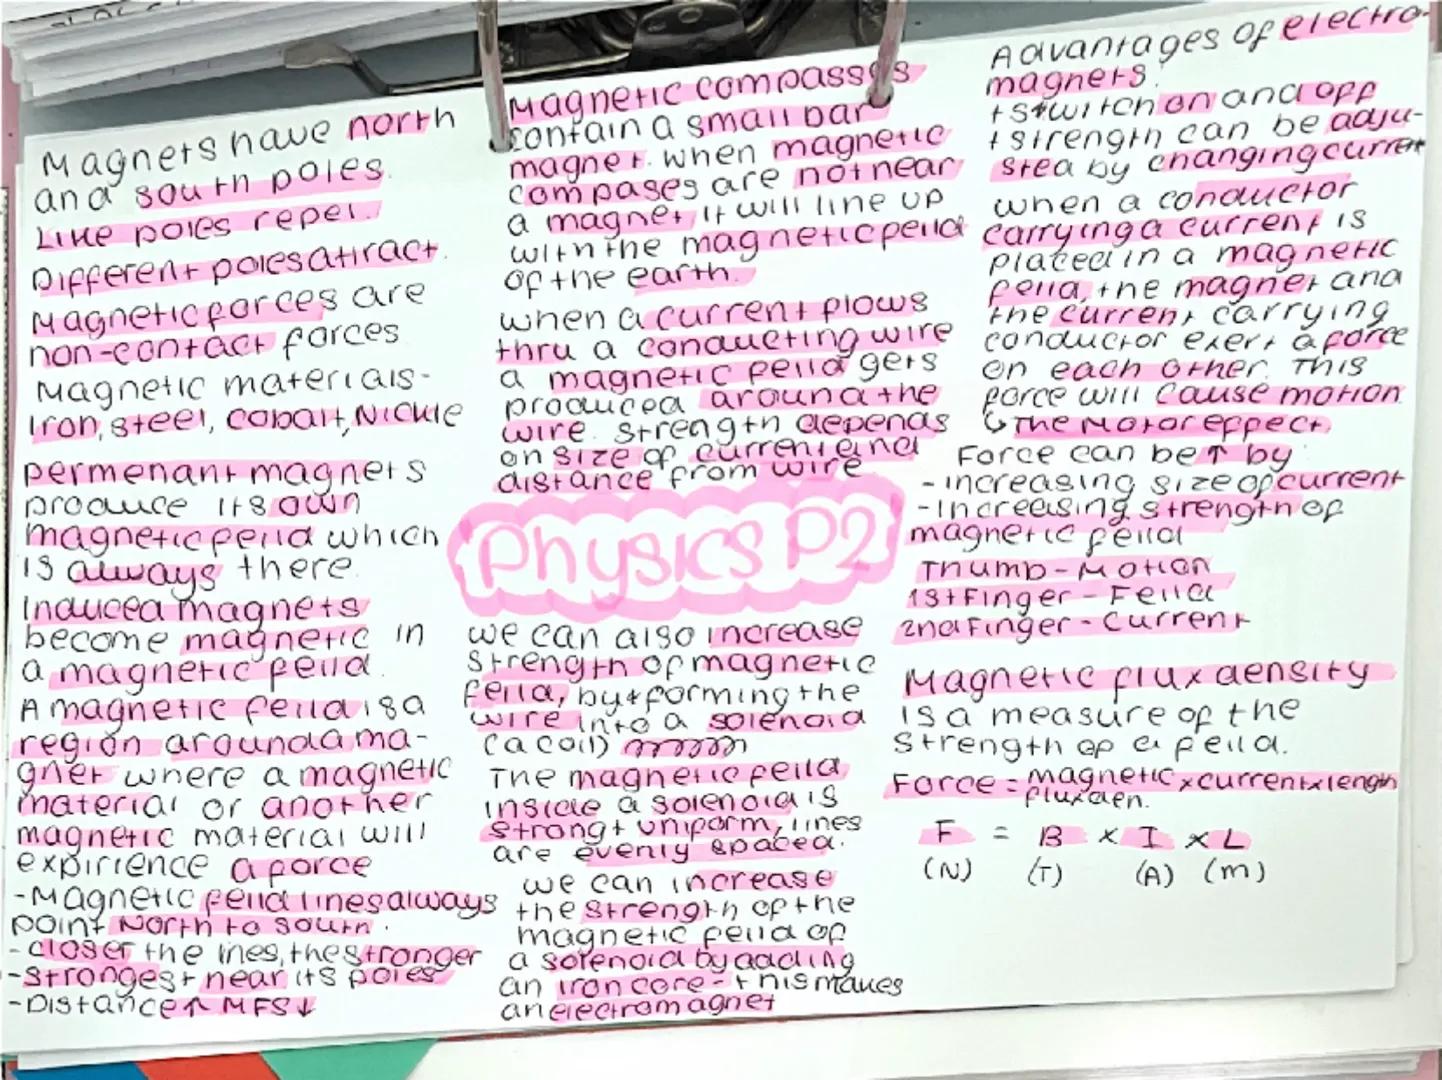 Magnets have north
and south poles.
Like poles repel.
Different poles attract.
Magnetic forces are
non-contact forces
Magnetic materials-
Iron, steel, cobalt, Nickle
permenant magnets
produce its own
magnetic feild which
is always there.
Induced magnets
become magnetic in
a magnetic feild.
A magnetic feild is a
region around a ma-
gnet where a magnetic
material or another
magnetic material will
expirience a force
-Magnetic feild lines always
point North to South.
-closer the lines, the stronger
-strongest near its poles
-Distance↑ MFS↓
Magnetic compasses
contain a small bar
magnet. when magnetic
compases are not near
a magnet it will line up
with the magnetic feild
of the earth.
when a current flows
thru a conducting wire
a magnetic feild gets
produced around the
wire. Strength depends
on size of current and
distance from wire
Physics P2
we can also increase
strength of magnetic
feild, by forming the
wire into a solenoid
(a coil)
The magnetic feild
inside a solenoid is
strong + uniform, lines
are evenly spaced.
we can increase
the strength of the
magnetic feild of
a solenoid by adding
an iron core - this makes
an electromagnet
Advantages of electro-
magnets.
+ switch on and off
+ strength can be adju-
sted by changing current
when a conductor
carrying a current is
placed in a magnetic
feild, the magnet and
the current carrying
conductor exert a force
on each other. This
force will cause motion
↳ The Motor effect.
Force can be ↑ by
- increasing size of current
- Increasing strength of
magnetic feild
Thumb - Motion
1st Finger - Feild
2nd Finger - Current
Magnetic flux density
is a measure of the
strength of a feild.
Force = magnetic x current x length
flux den.
F = B x I x L
(N) (T) (A) (m)